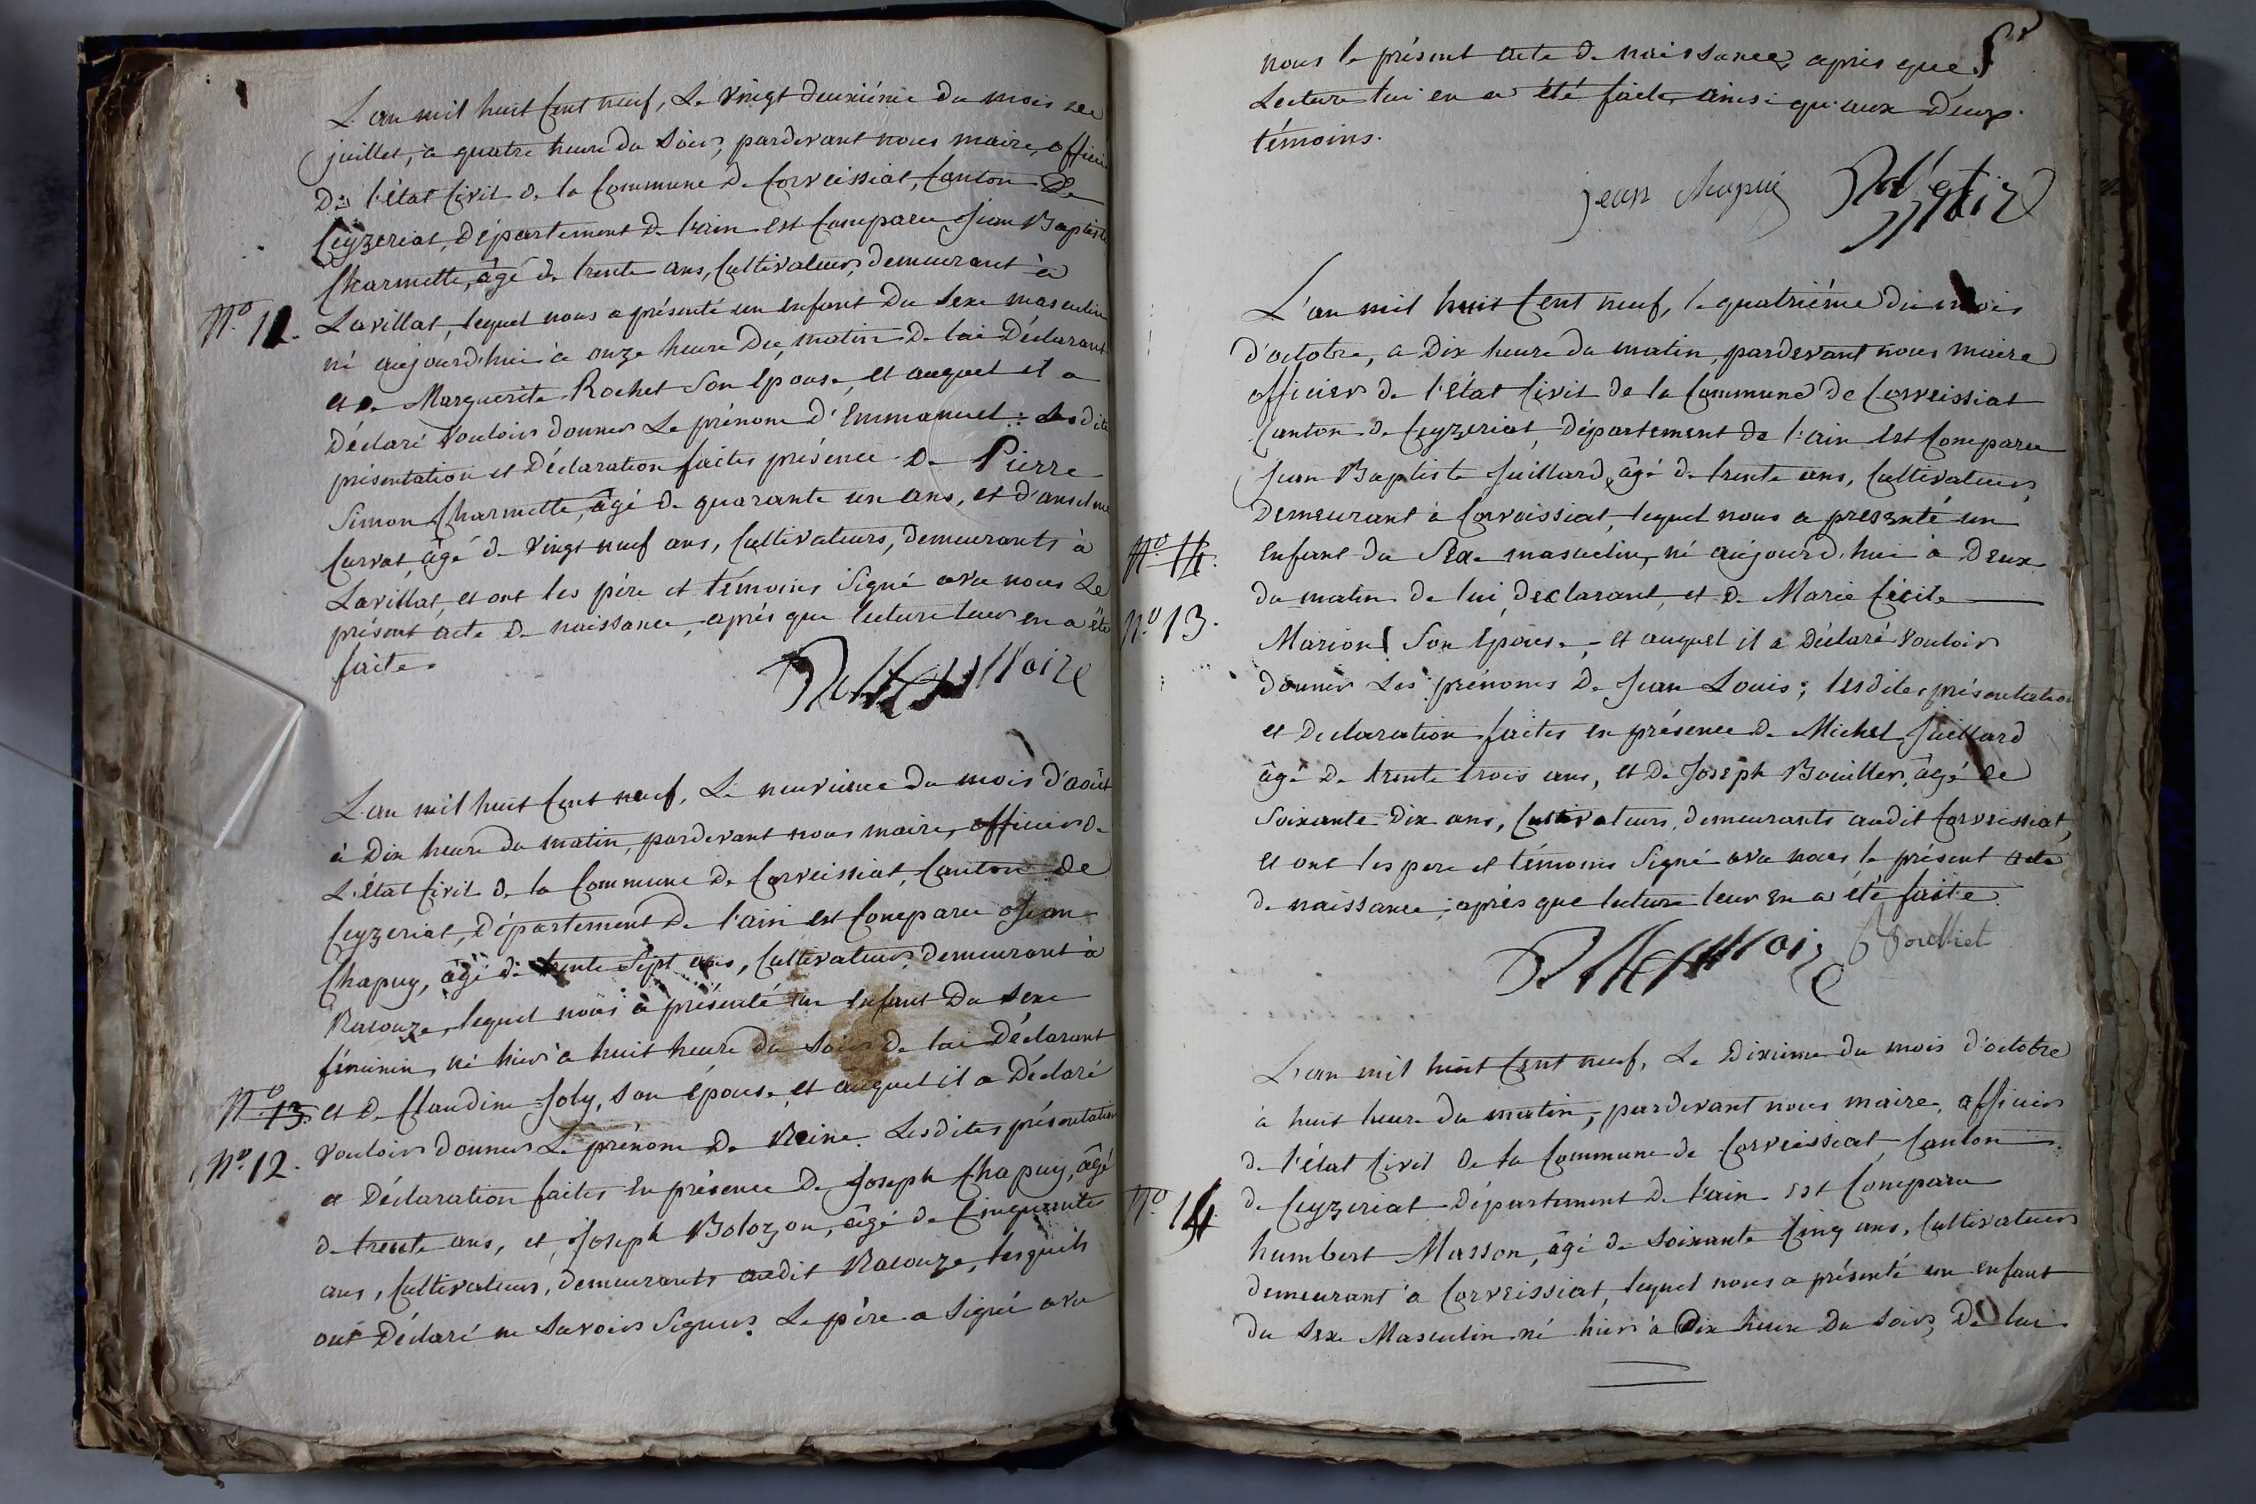 L'an mil huit Cent neuf, Le vingt deuxième du mois de
juillet, à quatre heure du Soir, pardevant nous maire, officier
De l'état Civil de la Commune de Corveissiat, Canton De
Ceyzeriat, Département de l'ain est Comparu Jean Baptiste
Charmette, âgé de trente ans, Cultivateur, demeurant à
Nº 11.
Lavillat, lequel nous a présenté un enfant Du Sexe masculin
né aujourd'hui à onze heure Du matin De lui Déclarant
et de Marguerite Rochet Son épouse, et auquel il a
Déclaré Vouloir donner Le prénom d'Emmanuel: Lesdites
présentation et Déclaration faites présence De Pierre
Simon Charmette, âgé de quarante un ans, et d'anselme
Curvat, âgé de vingt neuf ans, Cultivateurs, demeurants à
Lavillat, et ont les père et témoins Signé avec nous Le
présent acte de naissance, après que lecture leur en a été
faite.
L'an mil huit Cent neuf, Le neuvième du mois d'août
à Dix heure du matin, pardevant nous maire, officier de
L'état Civil de la Commune de Corveissiat, Canton De
Ceyzeriat, Département De l'ain est Comparu Jean
Chapuy, âgé de trente Sept ans, Cultivateur, demeurant à
Racouze, lequel nous a présenté un enfant Du Sexe
féminin, né hier à huit heure du Soir De lui Déclarant
Nº 13.
et De Claudine Joly, Son épouse et auquel il a Déclaré
Nº 12.
Vouloir donner Le prénom De Reine. Lesdites présentation
et Déclaration faites En présence De Joseph Chapuy, âgé
de trente ans, et Joseph Bolozon, âgé de Cinquante
ans, Cultivateurs, demeurants audit Racouze, lesquels
ont Déclaré ne Savoir Signer. Le père a Signé avec
nous le présent acte De naissance, après que
Lecture lui en a été faite, ainsi qu'aux Deux
témoins.
jean Chapui
L'an mil huit Cent neuf, le quatrième du mois
d'octobre, a Dix heure du matin, pardevant nous maire
officier de l'état Civil de la Commune de Corveissiat
Canton de Ceyzeriat, Département de l'ain Est Comparu
Jean Baptiste Juillard, âgé de trente ans, Cultivateur,
Demeurant à Corveissiat, lequel nous a présenté un
Nº 14.
Enfant du Sexe masculin, né aujourd'hui à Deux
du matin de lui déclarant, et De Marie Cécile
Nº 13.
Marion Son épouse, et auquel il a Déclaré vouloir
donner Les prénoms De Jean Louis; lesdites présentation
et Déclaration faites en présence De Michel Juillard
âgé De trente trois ans, et De Joseph Bouiller, âgé de
Soixante Dix ans, Cultivateurs, demeurants audit Corveissiat,
et ont les pere et témoins Signé avec nous le présent acte
de naissance, après que lecture leur En a été faite
L'an mil huit Cent neuf, Le Dixième du mois d'octobre
à huit heure du matin, pardevant nous maire, officier
de l'état Civil de la Commune de Corveissiat, Canton
de Ceyzeriat Département De l'ain Est Comparu
Nº 14.
humbert Masson, âgé de Soixante Cinq ans, Cultivateur
demeurant à Corveissiat, lequel nous a présenté un enfant
du Sexe Masculin né hier à Dix heure Du Soir, De lui